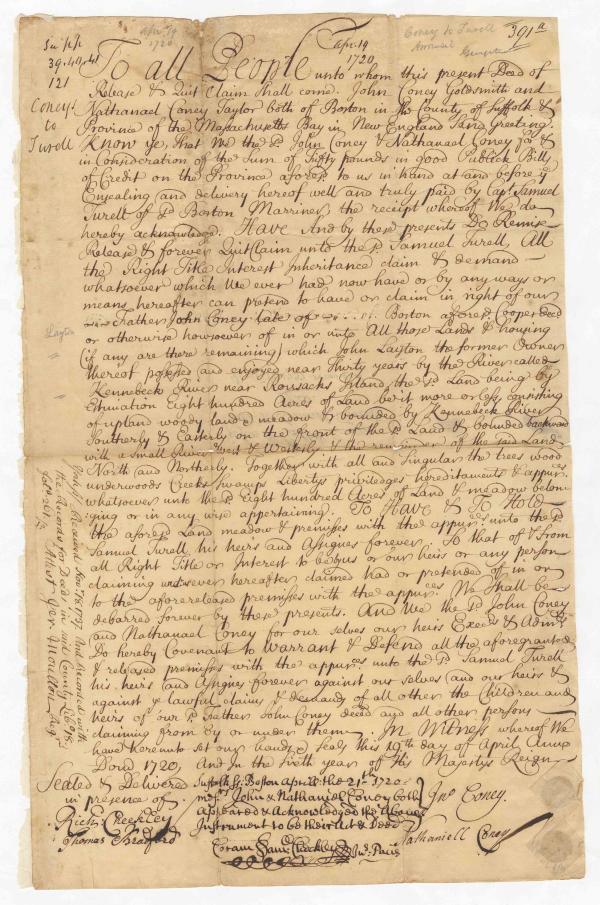 391a
Apr. 19
1720
Apr. 19
1720
Coney to Turell
39.40.41
121
Coney
to
Turell
To all People unto whom this present Deed of
Release & Quit Claim shall come. John Coney Goldsmith and
Nathanael Coney Taylor both of Boston in ye County of Suffolk &
Province of the Massachusetts Bay in New England Send Greeting.
Know ye, that We the sd John Coney & Nathanael Coney for &
in Consideration of the Sum of fifty pounds in good Publick Bills
of Credit on the Province aforesd to us in hand at and before ye
Ensealing and delivery hereof well and truly paid by Capt. Samuel
Turell of sd Boston Marriner, the receipt whereof We do
hereby acknowledge. Have And by these presents Do Remise
Release & forever Quit Claim unto the sd Samuel Turell, All
the Right Title Interest Inheritance claim & demand
whatsoever which We ever had now have or by any ways or
means hereafter can pretend to have or claim in right of our
Father John Coney late of Boston aforesd Cooper decd
or otherwise howsoever of in or unto All those Lands & housing
Layton
(if any are there remaining) which John Layton the former Owner
thereof possessed and enjoyed near thirty years by the River called
Kennebeck River near Rousacks Island, the sd Land being by
Estimation Eight hundred Acres of Land be it more or less, consisting
of upland woody land & meadow & bounded by Kennebeck River
Southerly & Easterly on the front of the sd Land & bounded backward
with a small River West & Westerly & the remainder of the said Land
North and Northerly. Together with all and Singular the trees wood
underwoods Creeks swamps Libertys priviledges hereditaments & appurces
whatsoever unto the sd Eight hundred Acres of Land & meadow belon
ging or in any wise appertaining. To Have & To Hold
the aforesd Land meadow & premisses with the appurces unto the sd
Samuel Turell his heirs and Assignes forever. So that of & from
all Right Title or Interest to be by us or our heirs or any person
claiming whatsoever hereafter claimed had or pretended of in or
to the aforereleased premisses with the appurces We Shall be
debarred forever by these presents. And We the sd John Coney
and Nathanael Coney for our selves our heirs Execrs & Admrs
Do hereby Covenant to Warrant & Defend all the aforegranted
& released premisses with the appurces unto the sd Samuel Turell
his heirs and Assignes forever against our selves and our heirs &
against ye lawful claims & demands of all other the Children and
heirs of our sd Father John Coney decd and all other persons
claiming from by or under them. In Witness whereof We
have hereunto set our hands & seals this 19th day of April Anno
Domi 1720, And in the sixth year of His Majestys Reign
Sealed & Delivered
in presence of
Richd Checkley
Thomas Bradford
Suffolk ss. Boston April the 21st 1720
John & Nathaniel Coney both
Appeared & Acknowledged the Above
Instrument to be their Act & Deed
Coram Saml Checkley Just. Pacis
Jno Coney.
Nathaniell Coney
Received Novr 16 1797 And Recorded with
the Records for Deeds in said County
Attest Jer. Moulton Reg.